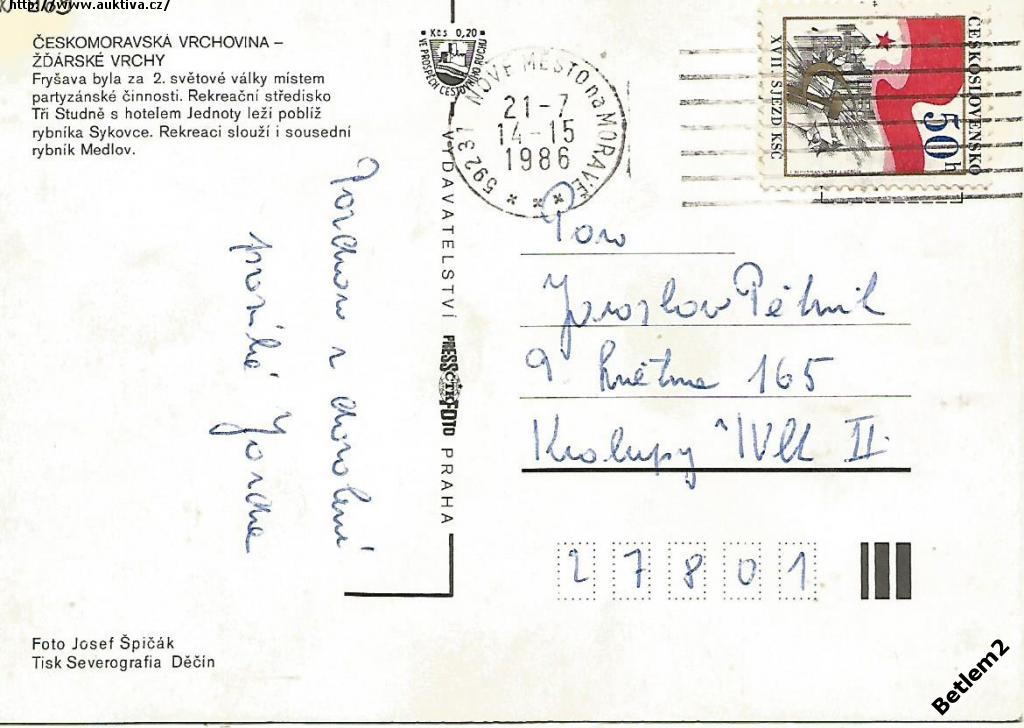 http://www.auktiva.cz/
ČESKOMORAVSKÁ VRCHOVINA –
ŽĎÁRSKÉ VRCHY
Fryšava byla za 2. světové války místem
partyzánské činnosti. Rekreační středisko
Tři Studně s hotelem Jednoty leží poblíž
rybníka Sykovce. Rekreaci slouží i sousední
rybník Medlov.
Pozdrav z dovolené
posílá
Foto Josef Špičák
Tisk Severografia Děčín
Kčs 0,20
VE PROSPĚCH CESTOVNÍHO RUCHU
VYDAVATELSTVÍ PRESSFOTO PRAHA
ČTK
NOVÉ MĚSTO na MORAVĚ
21-7
14-15
1986
592 31
ČESKOSLOVENSKO
50h
XVII. SJEZD KSČ
Pan
Jaroslav
9. Května 165
Kralupy n/Vlt II.
27801
Betlem2